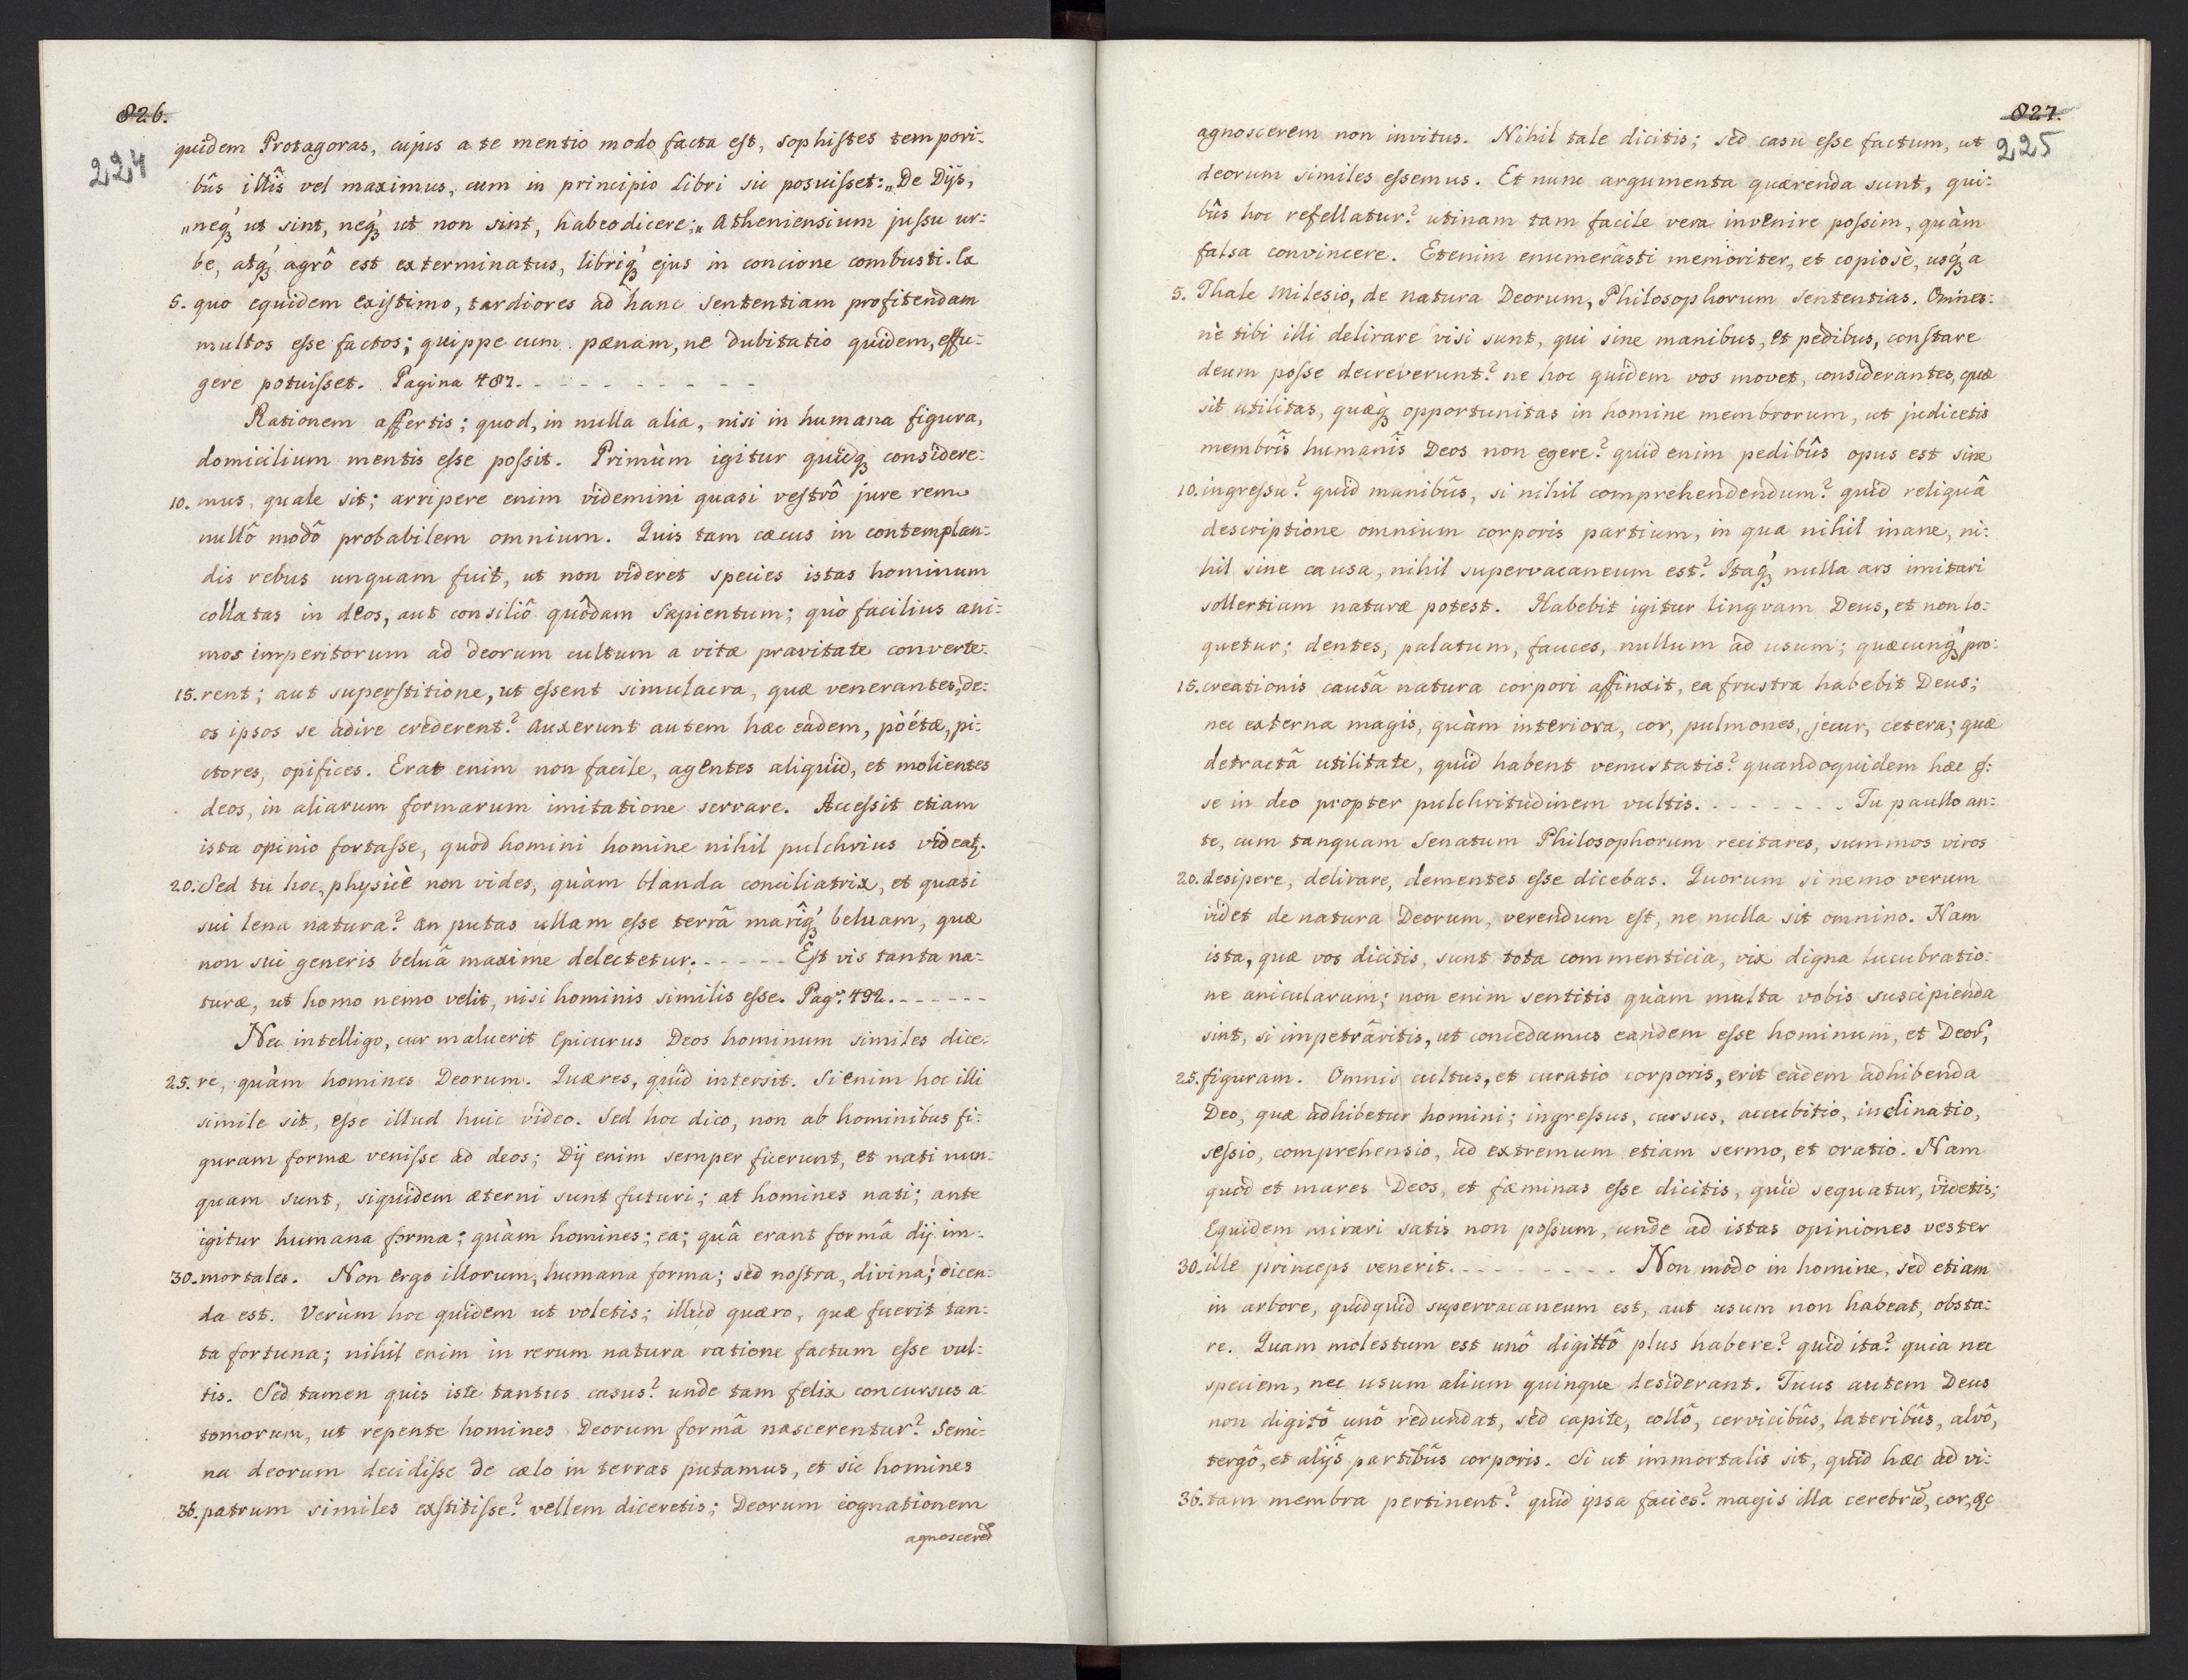 826.
224
quidem Protagoras, cujus a te mentio modo facta eſt, sophiſtes tempori-
bûs illîs vel maximus, cum in principio Libri sic posuiſset: „De Dijs,
„neq́ꝫ ut sint, neq́ꝫ ut non sint, habeo dicere;„ Atheniensium juſsu ur:
be, atq́ꝫ agrô est exterminatus, libriq́ꝫ ejus in concione combusti. Ex
5. quo equidem exiſtimo, tardiores ad hanc sententiam profitendam
multos eſse factos; quippe cum pœnam, ne dubitatio quidem, effu-
gere potuiſset. Pagina 487. - - - - - - - - -
Rationem affertis; quod, in nulla alia, nisi in humana figura,
domicilium mentis eſse poſsit. Primùm igitur quidq́ꝫ considere:
10. mus, quale sit; arripere enim videmini quasi veſtrô jure rem
nullô modô probabilem omnium. Quis tam cæcus in contemplan:
dis rebus unquam fuit, ut non videret species istas hominum
collatas in deos, aut consiliô quôdam sapientum; quò facilius ani:
mos imperitorum ad deorum cultum a vitæ pravitate converte:
15. rent; aut superſtitione, ut eſsent simulacra, quæ venerantes, de:
os ipsos se adire crederent? auxerunt autem hæc eadem, pòétæ, pi:
ctores, opifices. Erat enim non facile, agentes aliquid, et molientes
deos, in aliarum formarum imitatione servare. Acceſsit etiam
ista opinio fortaſse, quod homini homine nihil pulchrius videatꝫ.
20. Sed tu hoc, physicè non vides, quàm blanda conciliatrix, et quasi
sui lena natura? an putas ullam eſse terrâ marîq́ꝫ beluam, quæ
non sui generis beluâ maxime delectetur. - - - - - Eſt vis tanta na:
turæ, ut homo nemo velit, nisi hominis similis eſse. Pag: 492. - - - - - - -
Nec intelligo, cur maluerit Epicurus Deos hominum similes dice:
25. re, quàm homines Deorum. Quæres, quid intersit. Si enim hoc illi
simile sit, eſse illud huic video. Sed hoc dico, non ab hominibus fi:
guram formæ veniſse ad deos; Dij enim semper fuerunt, et nati nun:
quam sunt, siquidem æterni sunt futuri; at homines nati; ante
igitur humana forma; quàm homines; ea; quâ erant formâ dij im-
30. mortales. Non ergo illorum, humana forma; sed noſtra, divina; dicen:
da est. Verùm hoc quidem ut voletis; illud quæro, quæ fuerit tan:
ta fortuna; nihil enim in rerum natura ratione factum eſse vul:
tis. Sed tamen quis iste tantus casus? unde tam felix concursus a:
tomorum, ut repente homines Deorum formâ nascerentur? Semi:
na deorum decidiſse de cælo in terras putamus, et sic homines
36. patrum similes exſtitiſse? vellem diceretis; Deorum cognationem
agnoscerē
827.
225
agnoscerem non invitus. Nihil tale dicitis; sed casu eſse factum, ut
deorum similes eſsemus. Et nunc argumenta quærenda sunt, qui:
bûs hoc refellatur? utinam tam facile vera invenire poſsim, quàm
falsa convincere. Etenim enumerâsti memoriter, et copiosè, usq́ꝫ a
5. Thale Milesio, de natura Deorum, Philosophorum sententias. Omnes:
nè tibi illi delirare visi sunt, qui sine manibus, et pedibus, conſtare
deum poſse decreverunt? ne hoc quidem vos movet, considerantes, quæ
sit utilitas, quæq́ꝫ opportunitas in homine membrorum, ut judicetis
membrîs humanîs Deos non egere? quid enim pedibûs opus est sine
10. ingreſsu? quid manibûs, si nihil comprehendendum? quid reliquâ
descriptione omnium corporis partium, in qua nihil inane, ni:
hil sine causa, nihil supervacaneum est? Itaq́ꝫ nulla ars imitari
sollertiam naturæ potest. Habebit igitur lingvam Deus, et non lo:
quetur; dentes, palatum, fauces, nullum ad usum; quæcunq́ꝫ pro:
15. creationis causâ natura corpori affinxit, ea frustra habebit Deus;
nec externa magis, quàm interiora, cor, pulmones, jecur, cetera; quæ
detractâ utilitate, quid habent venustatis? quandoquidem hæc eſ:
se in deo propter pulchritudinem vultis. - - - - - - - Tu paullo an:
te, cum tanquam Senatum Philosophorum recitares, summos viros
20. desipere, delirare, dementes eſse dicebas. Quorum si nemo verum
videt de natura Deorum, verendum eſt, ne nulla sit omnino. Nam
ista, quæ vos dicitis, sunt tota commenticia, vix digna lucubratio:
ne anicularum; non enim sentitis quàm multa vobis suscipienda
sint, si impetrâritis, ut concedamus eandem eſse hominum, et Deoꝝ,
25. figuram. Omnis cultus, et curatio corporis, erit eadem adhibenda
Deo, quæ adhibetur homini; ingreſsus, cursus, accubitio, inclinatio,
seſsio, comprehensio, ad extremum etiam sermo, et oratio. Nam
quod et mares Deos, et fæminas eſse dicitis, quid sequatur, videtis;
Equidem mirari satis non poſsum, unde ad istas opiniones vester
30. ille princeps venerit. - - - - - - - - Non modo in homine, sed etiam
in arbore, quidquid supervacaneum est, aut usum non habeat, obsta:
re. Quam molestum est unô digittô plus habere? quid ita? quia nec
speciem, nec usum alium quinque desiderant. Tuus autem Deus
non digitô unô redundat, sed capite, collô, cervicibûs, lateribûs, alvô,
tergô, et alijs partibûs corporis. Si ut immortalis sit, quid hæc ad vi:
36. tam membra pertinent? quid ipsa facies? magis illa cerebrū, cor, &c